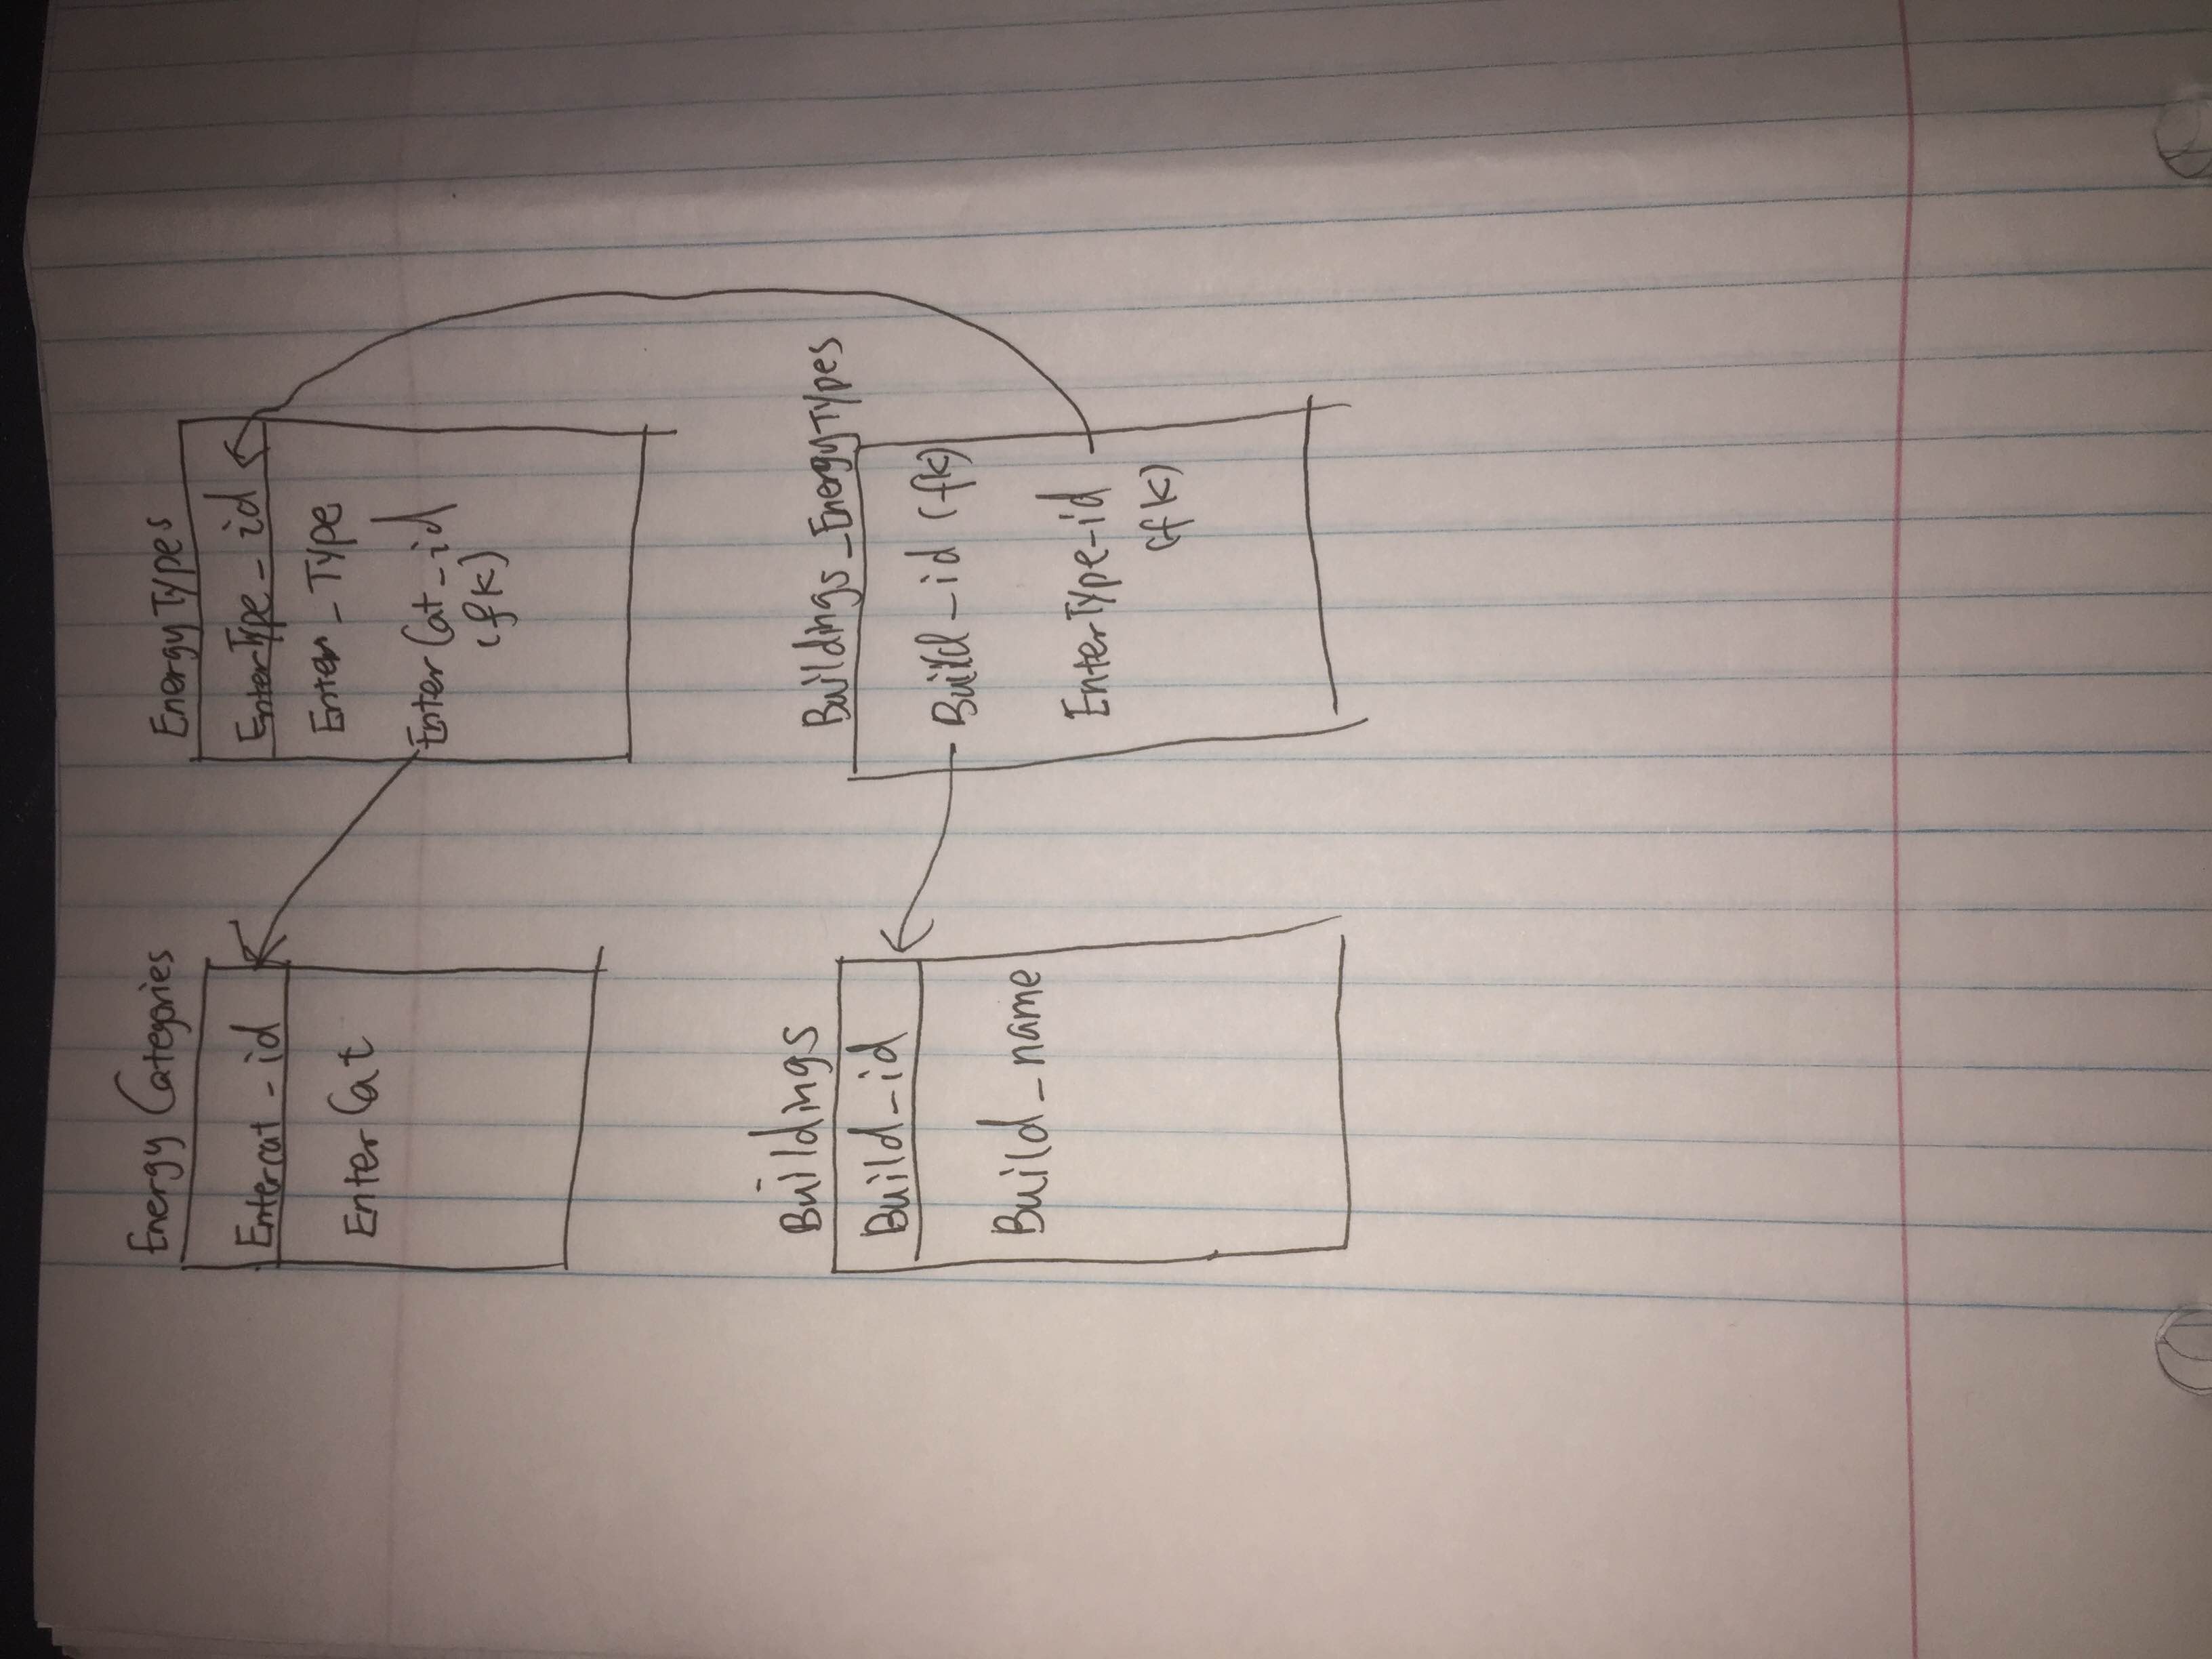 Energy Categories
Entercat_id
EnterCat
EnergyTypes
EnterType_id
Enter_Type
EnterCat_id
(fk)
Buildings
Build_id
Build_name
Buildings_EnergyTypes
Build_id (fk)
EnterType_id
(fk)